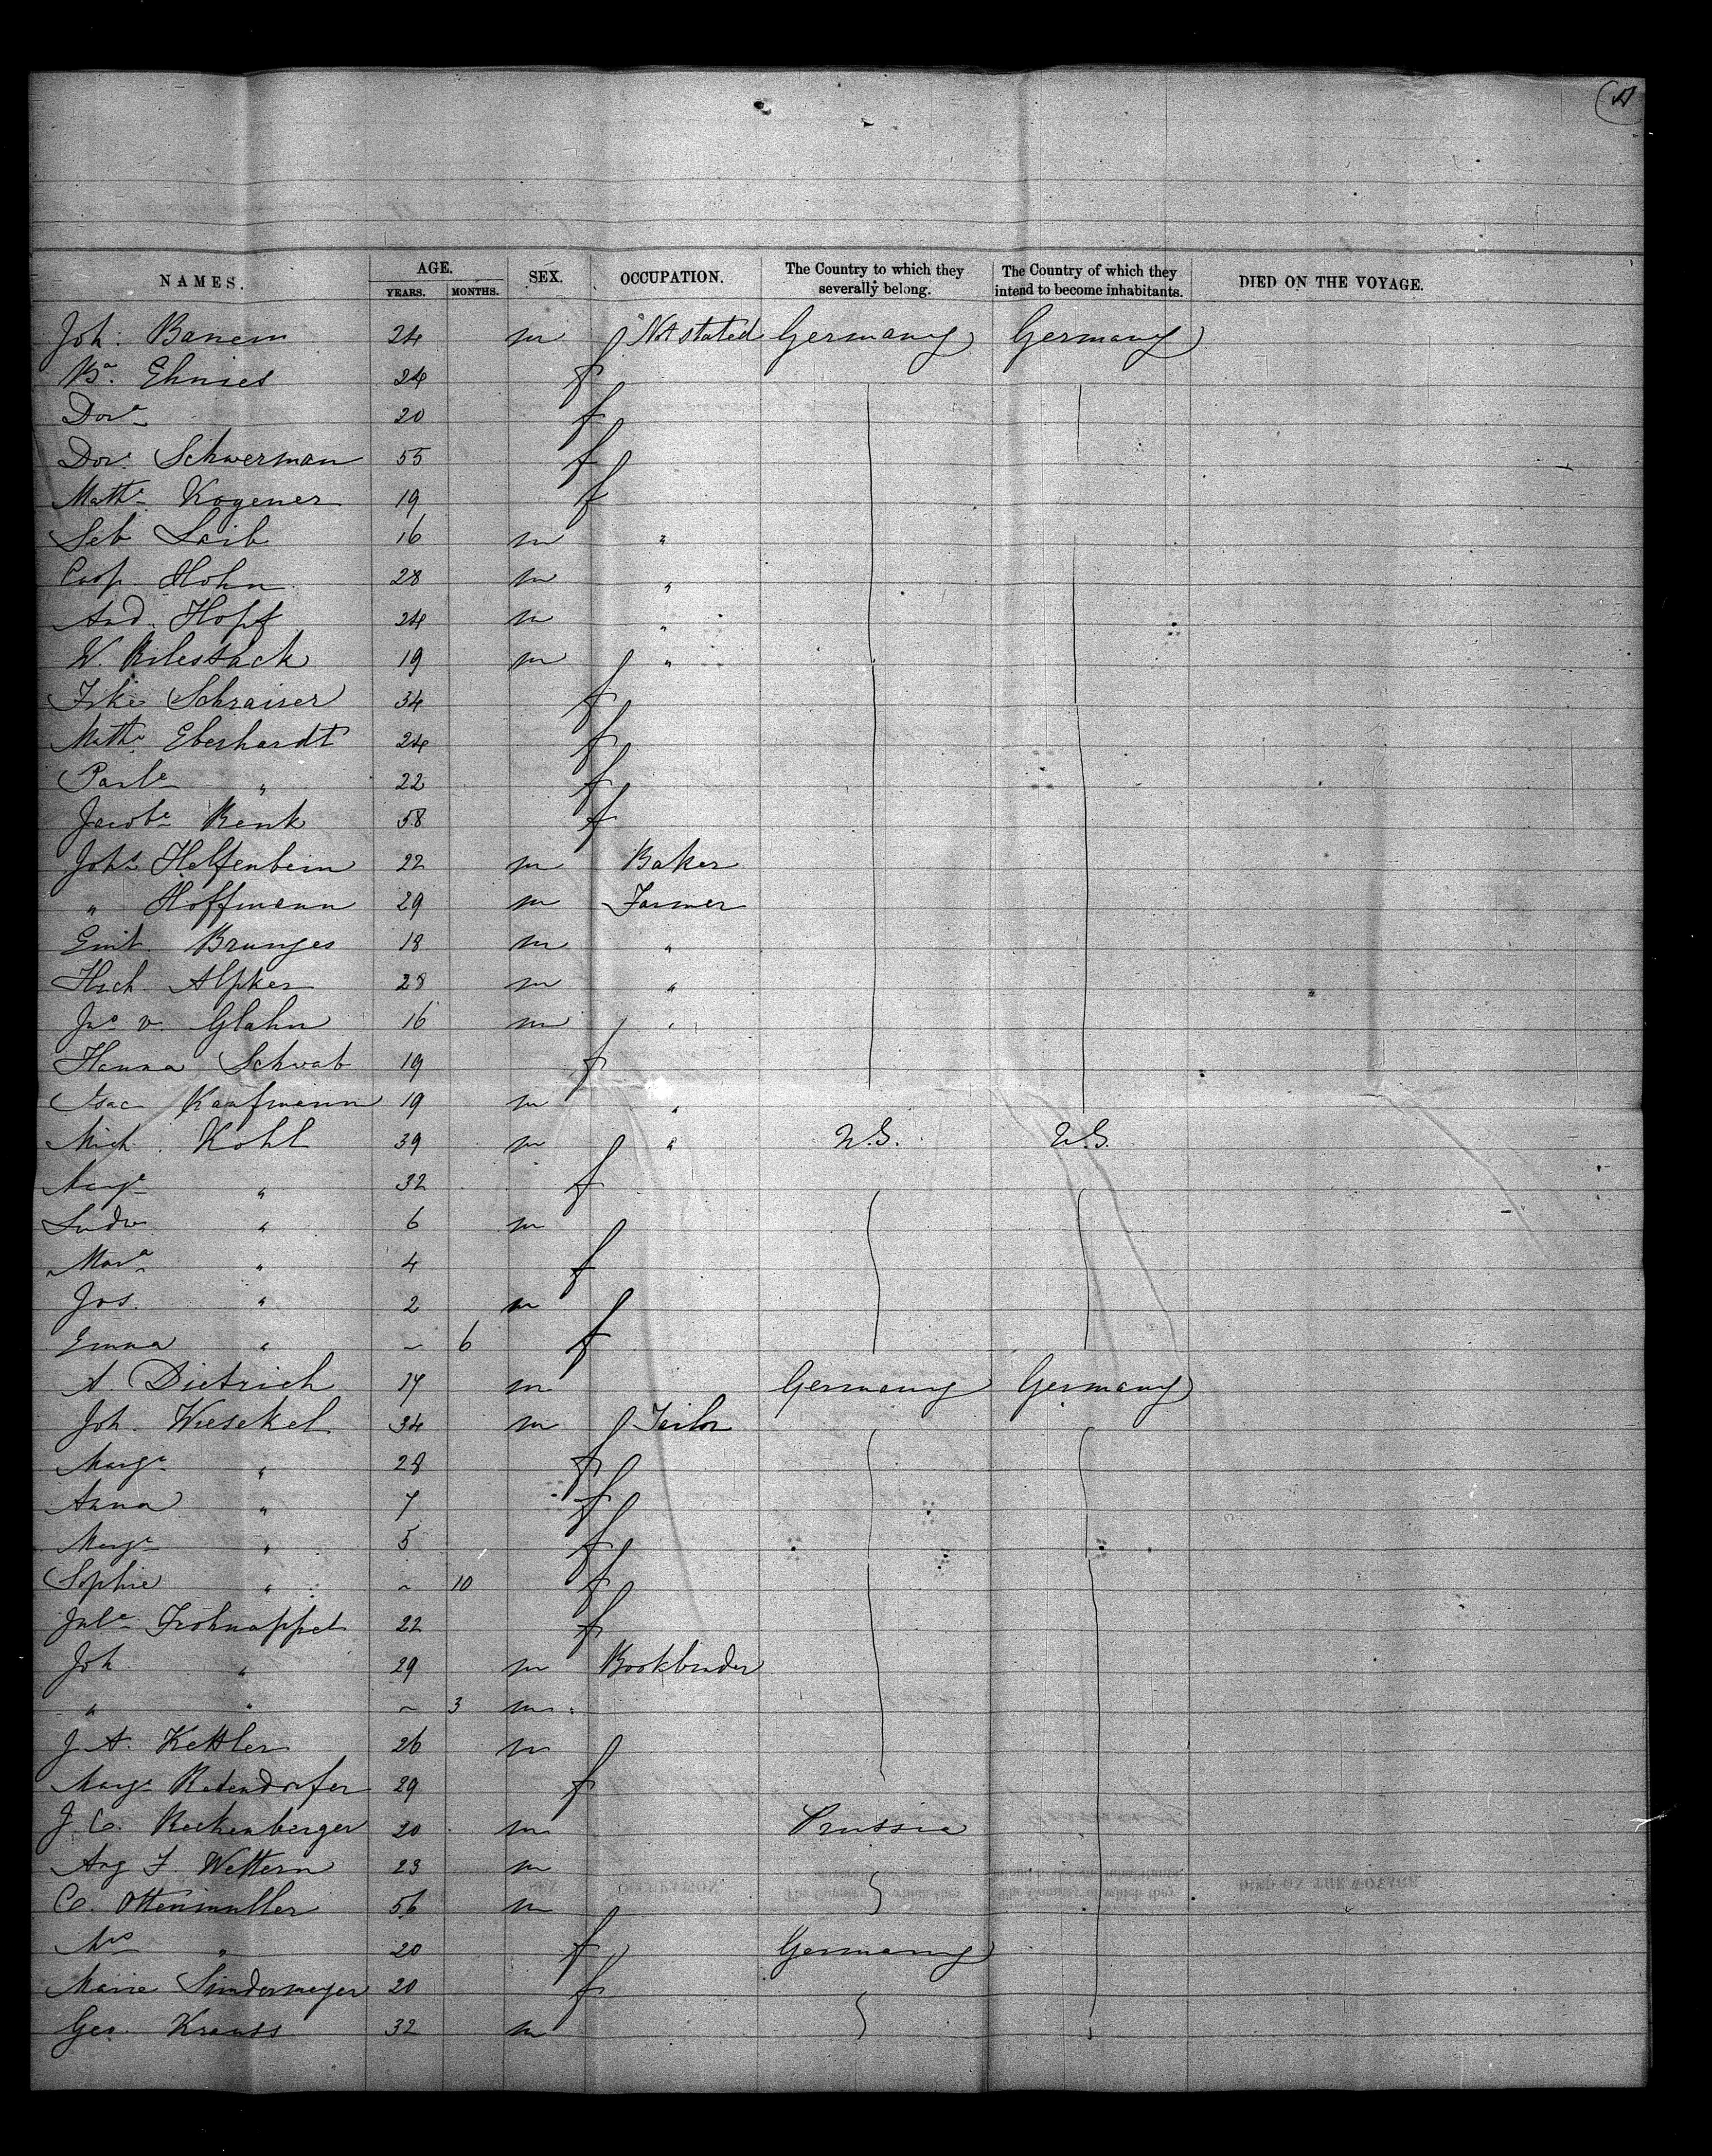 NAMES. AGE. SEX. OCCUPATION. The Country to which they severally belong. The Country of which they intend to become inhabitants. DIED ON THE VOYAGE.
YEARS. MONTHS.
Joh. Banem 24 m Not stated Germany Germany
Ba. Ehnies 24 f
Dore 20 f
Dore Schwerman 55 f
Mathe Kogener 19 f
Seb Laib 16 m "
Casp. Hohn 28 m "
And. Hopf 24 m "
W. Rilestack 19 m "
Frke Schraiser 34 f
Mathe Eberhardt 24 f
Parle " 22 f
Jacobe Renk 58 f
Johs Helfenbein 22 m Baker
" Hoffmann 29 m Farmer
Emil Brunges 18 m "
Hrch. Alpker 28 m "
Jno v. Glahn 16 m "
Hanna Schwab 19 f
Isac Kaufmann 19 m "
Mich. Kohl 39 m " U.S. U.S.
Marge " 32 f
Ludw " 6 m
Mara " 4 f
Jos. " 2 m
Emma " ~ 6 f
A. Dietrich 17 m Germany Germany
Joh. Wiesekel 34 m Tailor
Marge " 28 f
Anna " 7 f
Marge " 5 f
Sophie " ~ 10 f
Jule Frohnappel 22 f
Joh. " 29 m Bookbinder
" " ~ 3 m
J. A. Kettler 26 m
Marge Redendorfer 29 f
J. C. Reckenberger 20 m Prussia
Aug F. Wettern 23 m
C. Ottenmuller 56 m
Mrs " 20 f Germany
Marie Sindermeyer 20 f
Geo. Krauss 32 m